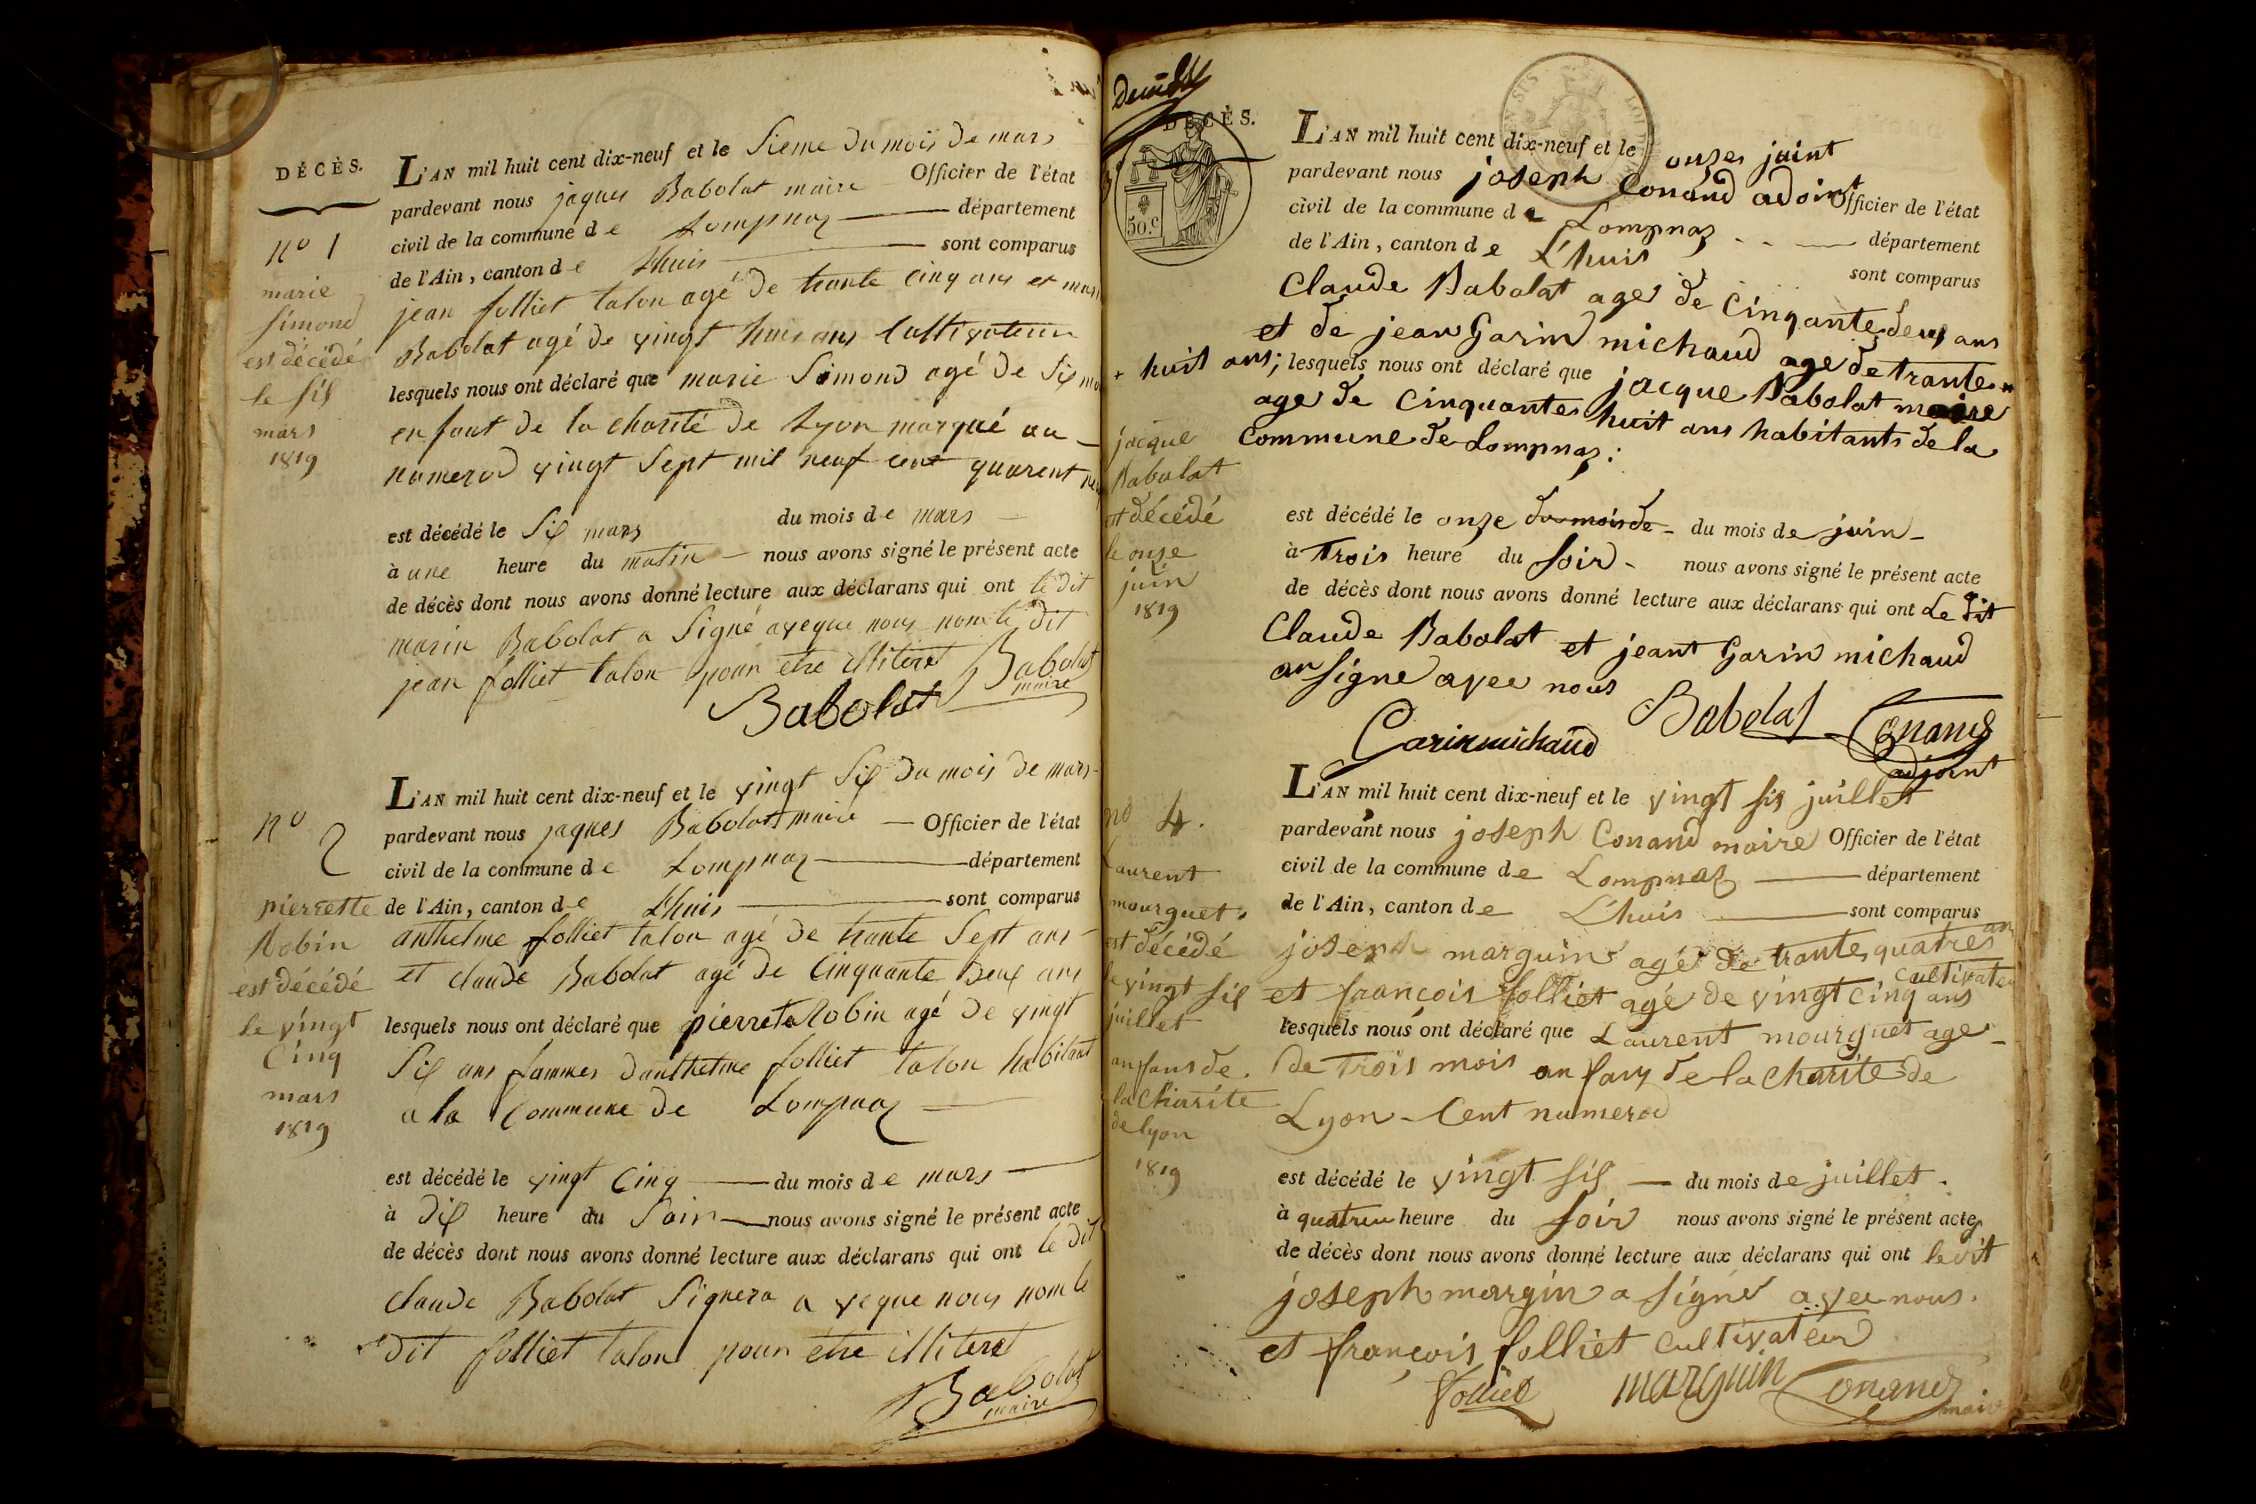 DÉCÈS.
L'AN mil huit cent dix-neuf et le sieme du mois de mars
pardevant nous jaques Babolat maire Officier de l'état
civil de la commune de Lompnaz département
de l'Ain, canton de Lhuis sont comparus
jean folliet talon agé de trante cinq ans et
Babolat agé de vingt huis ans Cultivateur
lesquels nous ont déclaré que marie Simond agé de Six
enfant de la charité de Lyon marqué au
numerod vingt Sept mil neuf cent quarent
est décédé le Six mars du mois de mars
à une heure du matin nous avons signé le présent acte
de décès dont nous avons donné lecture aux déclarans qui ont le dit
marin Babolat a Signé aveque nous nom le dit
jean folliet talon pour etre illiteret Babolat
maire
Babolat
no 1
marie
Simond
est décédé
le six
mars
1819
L'AN mil huit cent dix-neuf et le vingt Six du mois de mars
pardevant nous jaques Babolat maire Officier de l'état
civil de la commune de Lompnaz département
de l'Ain, canton de Lhuis sont comparus
anthelme folliet talon agé de trante Sept ans
et claude Babolat agé de Cinquante Deux ans
lesquels nous ont déclaré que pierrete Robin agé de vingt
Six ans fammes danthelme folliet talon habitant
a la Commune de Lompnaz
est décédé le vingt Cinq du mois de mars
à Dix heure du Soir nous avons signé le présent acte
de décès dont nous avons donné lecture aux déclarans qui ont le dit
claude Babolat Signera a veque nous nom le
dit folliet talon pour etre illiteret
Babolat
maire
no
2
pierrette
Robin
est décédé
le vingt
Cinq
mars
1819
DÉCÈS.
50.c
L'AN mil huit cent dix-neuf et le onzes juint
pardevant nous joseph Conand adoint Officier de l'état
civil de la commune de Lompnaz département
de l'Ain, canton de L'huis sont comparus
Claude Babolat ages de Cinqantes deux ans
et de jean Garin michaud age de trante
+ huit ans; lesquels nous ont déclaré que jacque Babolat maire
age de Cinquantes huit ans habitants de la
Commune de Lompnaz:
est décédé le onze du mois de du mois de juin
à Trois heure du Soir nous avons signé le présent acte
de décès dont nous avons donné lecture aux déclarans qui ont Le dit
Claude Babolat et jeant Garin michaud
an signe avec nous
Garin michaud Babolat Conand
adjoint
jacque
Babolat
est décédé
le onze
juin
1819
L'AN mil huit cent dix-neuf et le vingt six juillet
pardevant nous joseph Conand maire Officier de l'état
civil de la commune de Lompnaz département
de l'Ain, canton de L'huis sont comparus
joseph marguin agé de trante quatres an
cultivateur
et françois folliet agé de vingt cinq ans
lesquels nous ont déclaré que Laurent mourguet age
de Trois mois an fans de la Charite de
Lyon Cent numerod
est décédé le vingt six du mois de juillet.
à quatre heure du soir nous avons signé le présent acte
de décès dont nous avons donné lecture aux déclarans qui ont le dit
joseph margin a signé avec nous.
et françois folliet Cultivateur
folliet marguin Conand
maire
no 4.
Laurent
mourguet
est décédé
le vingt six
juillet
anfans de
la Charite
de lyon
1819